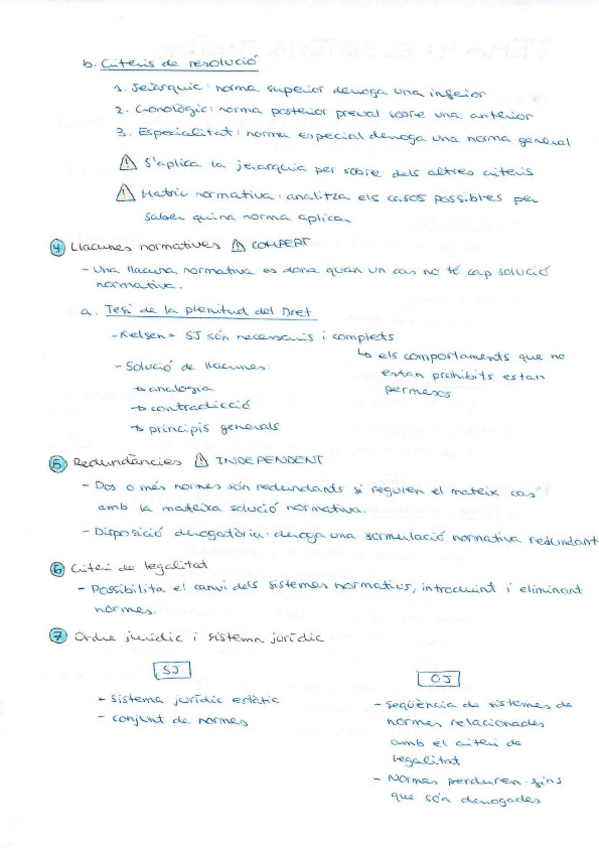 b. Criteris de resolució
1. Jeràrquic: norma superior deroga una inferior
2. Cronològic: norma posterior preval sobre una anterior
3. Especialitat: norma especial deroga una norma general
⚠ S'aplica la jerarquia per sobre dels altres criteris
⚠ Matriu normativa: analitza els casos possibles per
saber quina norma aplicar
④ Llacunes normatives ⚠ COMPERT
- Una llacuna normativa es dona quan un cas no té cap solució
normativa.
a. Tesi de la plenitud del Dret
- Kelsen = SJ són necessaris i complets
↳ els comportaments que no
estan prohibits estan
permesos
- Solució de llacunes:
↳ analogia
↳ contradicció
↳ principis generals
⑤ Redundàncies ⚠ INDEPENDENT
- Dos o més normes són redundants si regulen el mateix cas
amb la mateixa solució normativa.
- Disposició derogatòria: deroga una formulació normativa redundant
⑥ Criteri de legalitat
- Possibilita el canvi dels sistemes normatius, introduint i eliminant
normes.
⑦ Ordre jurídic i sistema jurídic
SJ
- Sistema jurídic estàtic
- conjunt de normes
OJ
- Seqüència de sistemes de
normes relacionades
amb el criteri de
legalitat
- Normes perduren fins
que són derogades